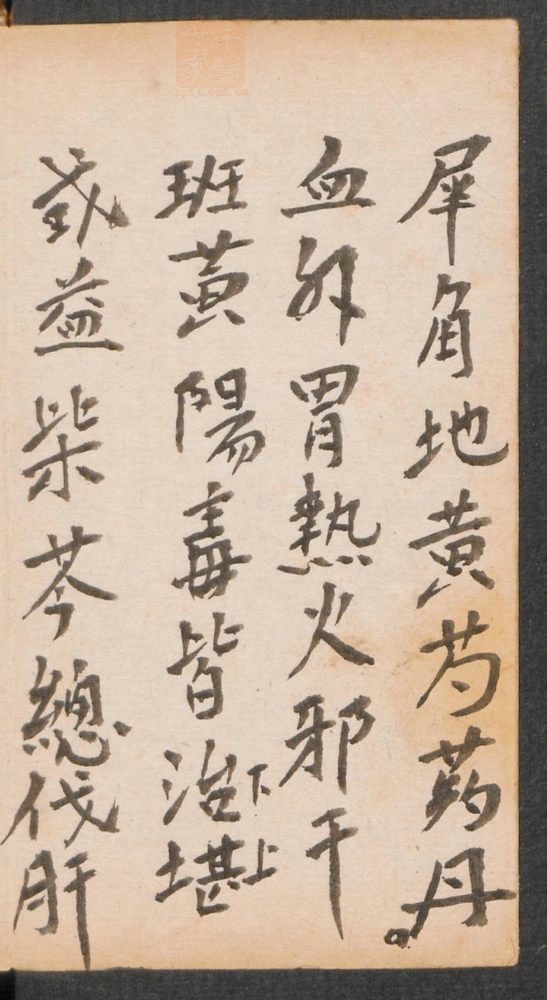 犀角地黃芍药丹。
血升胃熱火邪干
班黃陽毒皆治堪
下上
或益柴芩總伐肝